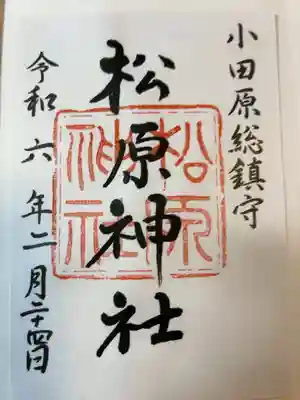 小田原総鎮守
松原神社
松原神社
令和六年二月二十四日